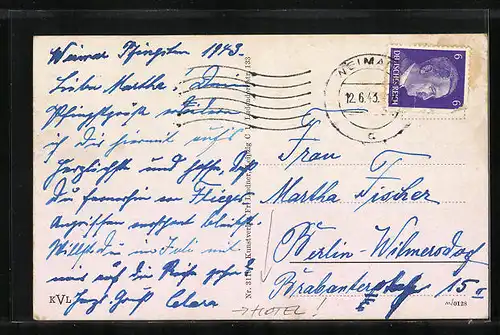 Weimar Pfingsten 1943.
Liebe Martha! Dein
Pfingstgruß
ich Dir hiermit aufs
herzlichste und hoffe, daß
Du fernerhin von Flieger
Angriffen verschont bleibst.
Willst du im Juli mit
mir auf die Reise gehen?
Herzl. Gruß Clara
KVL
Nr. 31 Kunstverlag Fr. Lindner, Leipzig C 1, 133
WEIMAR
12.6.43.
c
6 6
DEUTSCHES REICH
Frau
Martha Fischer
Berlin-Wilmersdorf
Brabanterstr. 15 II
→ HOTEL !
m/0128